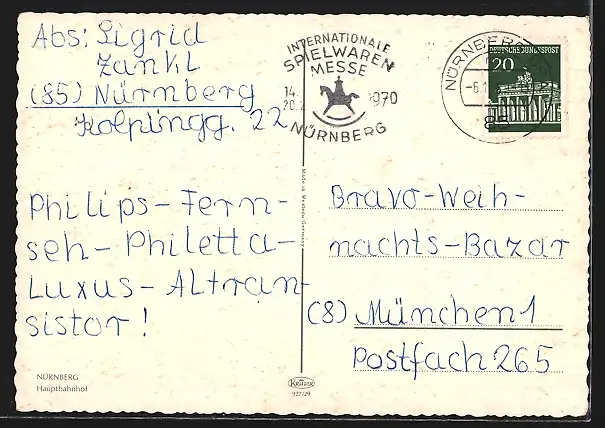 Abs: Sigrid
Zankl
(85) Nürnberg
Kolpingg. 22
INTERNATIONALE
SPIELWAREN
MESSE
14.
20.2. 1970
NÜRNBERG
NÜRNBERG
-6.1
85
DEUTSCHE BUNDESPOST
20
Made in Western Germany
Philips-Fern-
seh-Philetta-
Luxus-Altran-
sistor!
Bravo-Weih-
nachts-Bazar
(8) München 1
Postfach 265
NÜRNBERG
Hauptbahnhof
KRÜGER
927/29